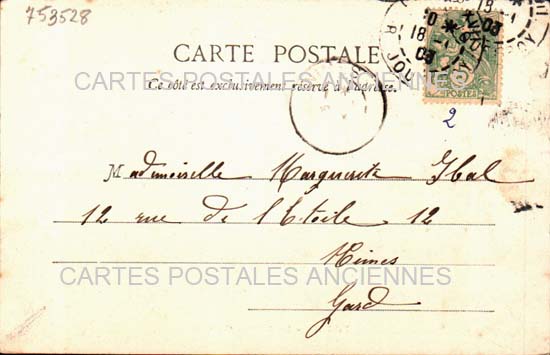 753528
CARTE POSTALE
CARTES POSTALES ANCIENNES
Ce côté est exclusivement réservé à l'adresse.
POSTES
R. JOU
18-1
03
2
Mademoiselle Marguerite Ibal
12 rue de l'Etoile 12
Nimes
CARTES POSTALES ANCIENNES
Gard